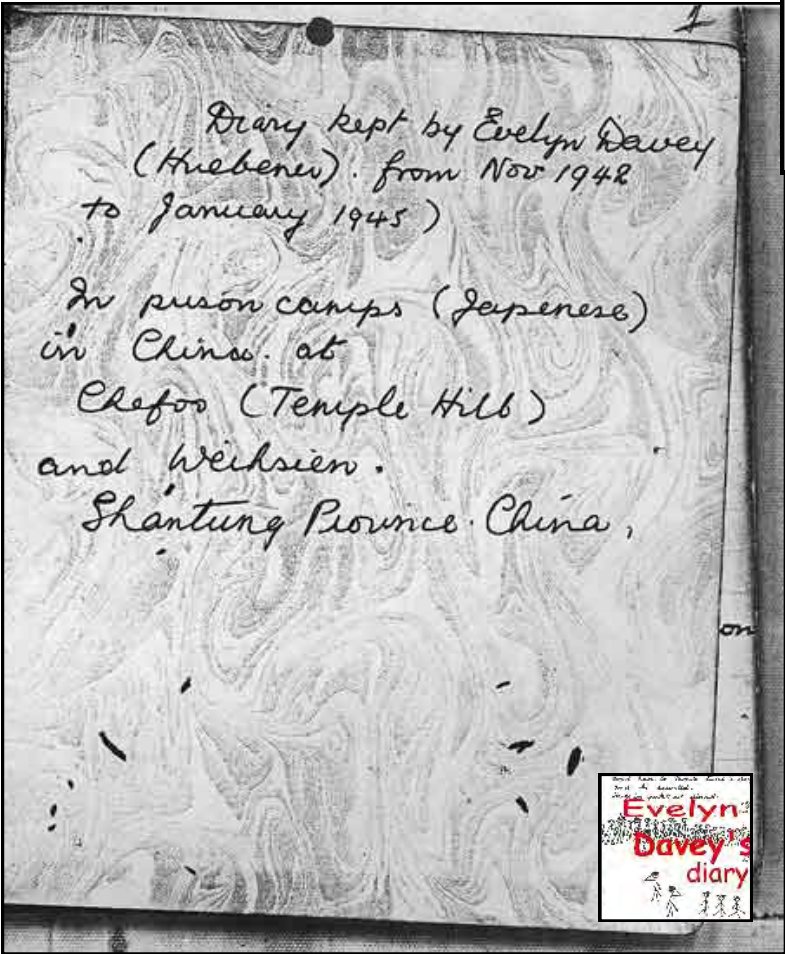 1
Diary kept by Evelyn Davey
(Huebener). from Nov 1942
to January 1945)
In prison camps (Japenese)
in China. at
Chefoo (Temple Hill)
and Weihsien.
Shantung Province. China,
on
Evelyn
Davey's
diary